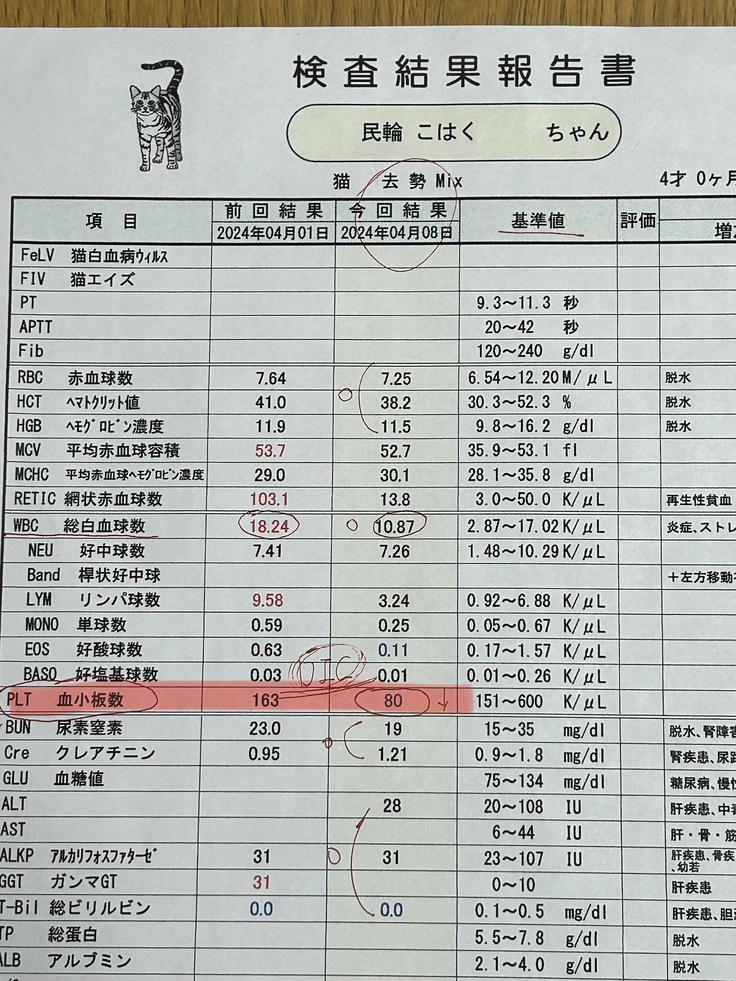 検査結果報告書
民輪 こはく ちゃん
猫 去勢 Mix 4才 0ヶ月
項 目 前回結果 今回結果 基準値 評価
2024年04月01日 2024年04月08日
FeLV 猫白血病ｳｨﾙｽ
FIV 猫エイズ
PT 9.3～11.3 秒
APTT 20～42 秒
Fib 120～240 g/dl
RBC 赤血球数 7.64 7.25 6.54～12.20 M/μL 脱水
HCT ﾍﾏﾄｸﾘｯﾄ値 41.0 38.2 30.3～52.3 % 脱水
HGB ﾍﾓｸﾞﾛﾋﾞﾝ濃度 11.9 11.5 9.8～16.2 g/dl 脱水
MCV 平均赤血球容積 53.7 52.7 35.9～53.1 fl
MCHC 平均赤血球ﾍﾓｸﾞﾛﾋﾞﾝ濃度 29.0 30.1 28.1～35.8 g/dl
RETIC 網状赤血球数 103.1 13.8 3.0～50.0 K/μL 再生性貧血
WBC 総白血球数 18.24 10.87 2.87～17.02 K/μL 炎症、ストレ
NEU 好中球数 7.41 7.26 1.48～10.29 K/μL
Band 桿状好中球 +左方移動
LYM リンパ球数 9.58 3.24 0.92～6.88 K/μL
MONO 単球数 0.59 0.25 0.05～0.67 K/μL
EOS 好酸球数 0.63 0.11 0.17～1.57 K/μL
BASO 好塩基球数 0.03 DIC 0.01 0.01～0.26 K/μL
PLT 血小板数 163 80 ↓ 151～600 K/μL
BUN 尿素窒素 23.0 19 15～35 mg/dl 脱水、腎障害
Cre クレアチニン 0.95 1.21 0.9～1.8 mg/dl 腎疾患、尿
GLU 血糖値 75～134 mg/dl 糖尿病、慢性
ALT 28 20～108 IU 肝疾患、中毒
AST 6～44 IU 肝・骨・筋
ALKP ｱﾙｶﾘﾌｫｽﾌｧﾀｰｾﾞ 31 31 23～107 IU 肝疾患、骨疾
、幼若
GGT ガンマGT 31 0～10 肝疾患
T-Bil 総ビリルビン 0.0 0.0 0.1～0.5 mg/dl 肝疾患、胆
TP 総蛋白 5.5～7.8 g/dl 脱水
ALB アルブミン 2.1～4.0 g/dl 脱水